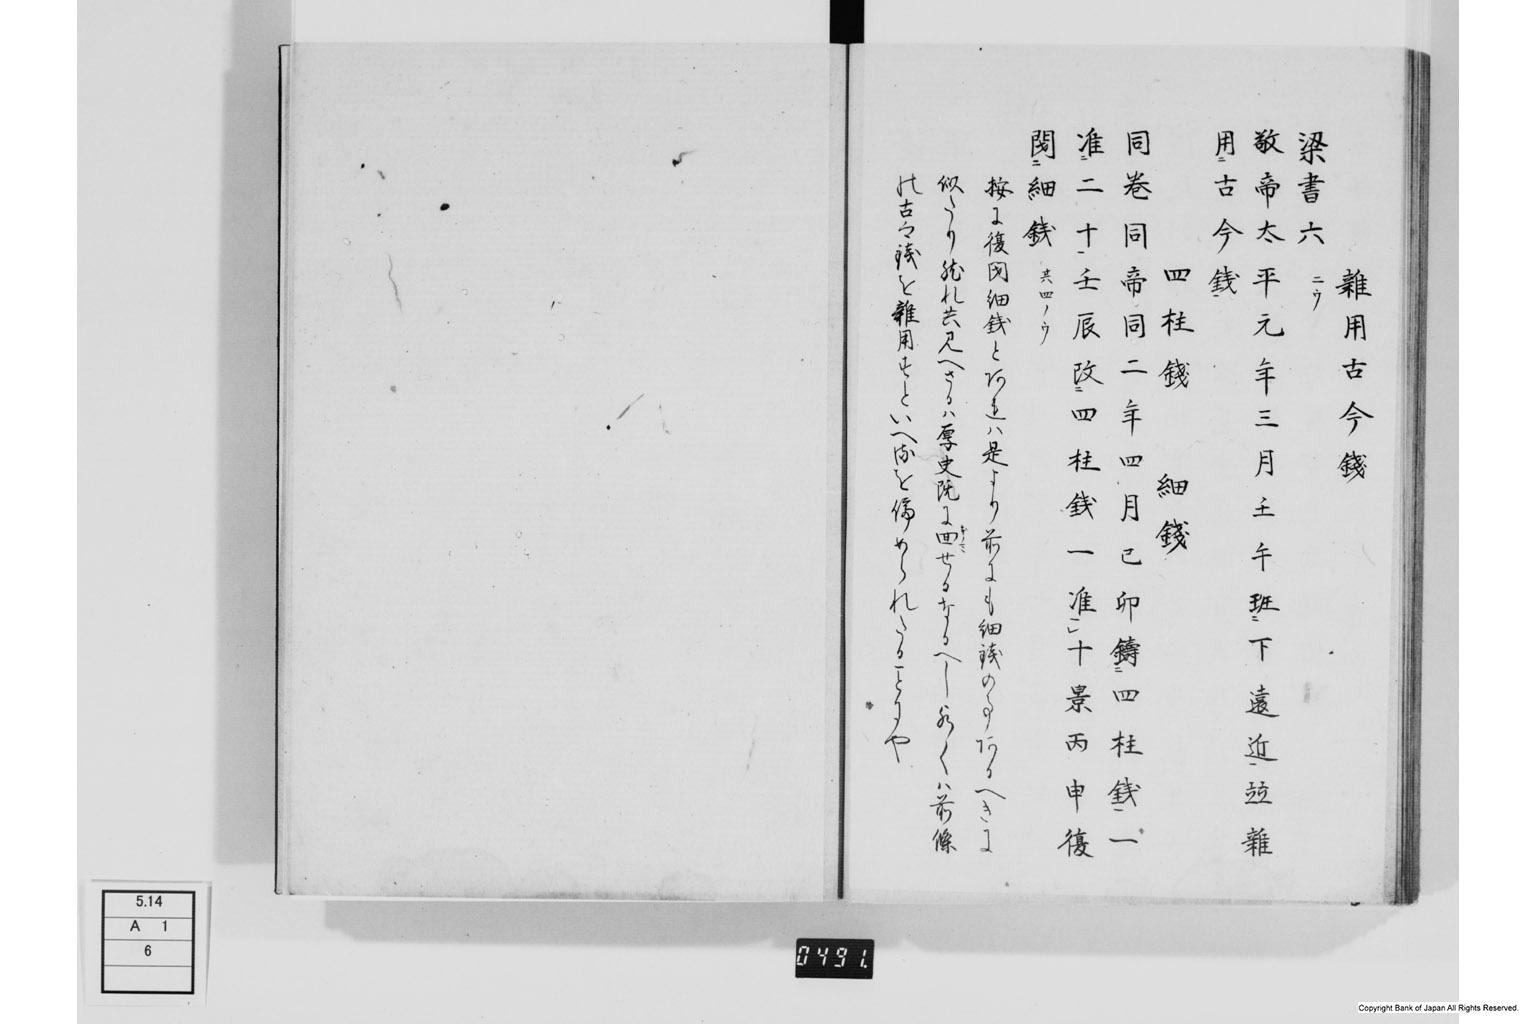 雜用古今錢
梁書六 二ウ
敬帝太平元年三月壬午班ニ下遠近並雜
用ニ古今錢
四柱錢 細錢
同巻同帝同二年四月己卯鑄ニ四柱錢一
准ニ二十壬辰改ニ四柱錢一准十景丙申復
閇ニ細錢 其四ノウ
按に復図細錢とあれハ是より前にも細錢の事あるへきに
似たり然れ共見へさるハ厚史既に せるなるへし く八前條
の古今錢を雜用すといへるを められたることにや
5.14
A 1
6
0491.
Copyright Bank of Japan All Rights Reserved.